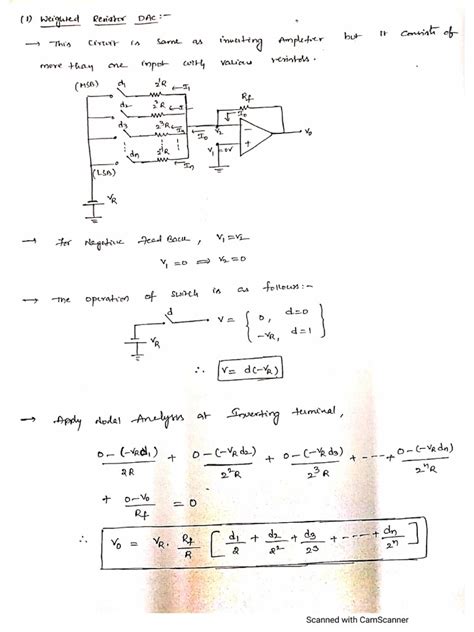 (1) Weighted Resistor DAC :-
→ This circuit is same as inverting Amplifier but it consists of
more than one input with various resistors.
(MSB) d1 2¹R ← I1
d2 2²R ← I2
d3 2³R ← I3
dn 2ⁿR ← In
(LSB)
VR
Rf
I0
I0
V2
V1 = 0V
V0
→ For Negative Feed Back, V1 = V2
V1 = 0 ⇒ V2 = 0
→ The operation of switch is as follows:-
d
VR
V = { 0, d=0
-VR, d=1 }
∴ V = d(-VR)
→ Apply nodal Analysis at Inverting terminal,
0-(-VRd1)/2R + 0-(-VRd2)/2²R + 0-(-VRd3)/2³R + ---- + 0-(-VRdn)/2ⁿR
+ 0-V0/Rf = 0
∴ V0 = VR . Rf/R [ d1/2 + d2/2² + d3/2³ + ---- + dn/2ⁿ ]
Scanned with CamScanner